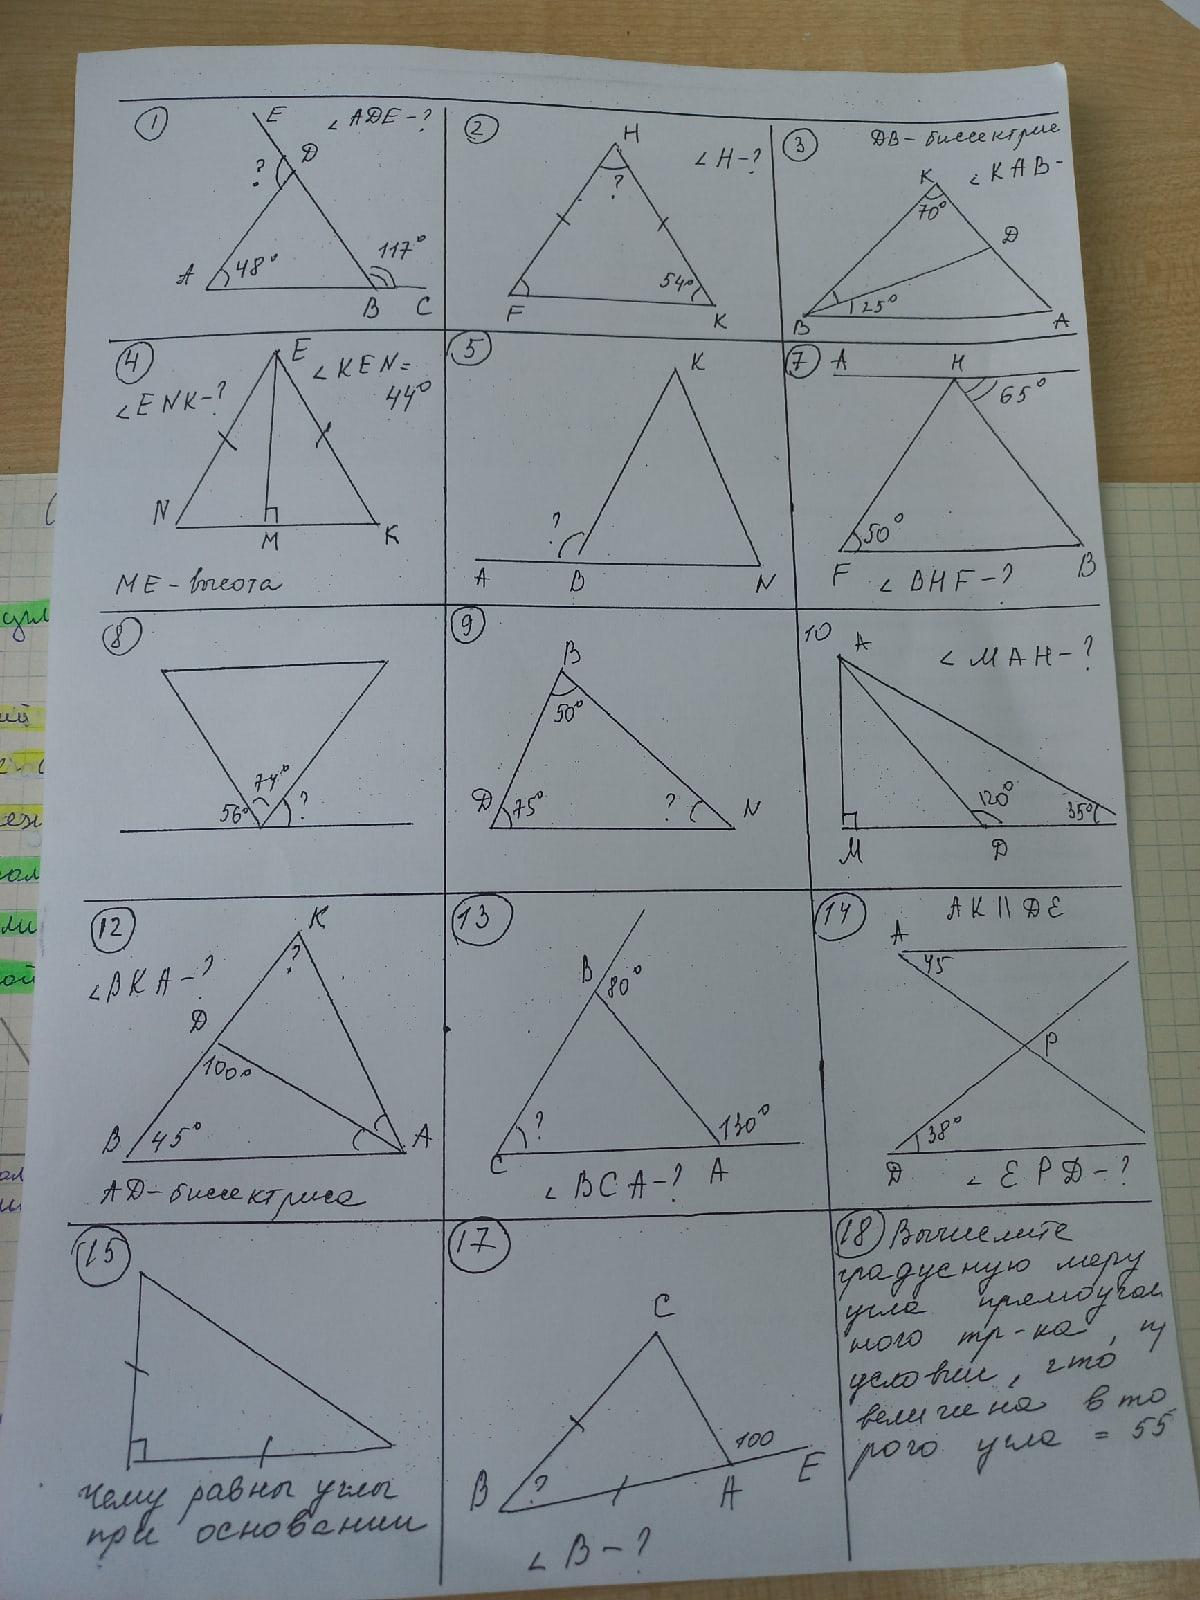 1
E
∠ADE-?
?
D
A
48°
117°
B
C
2
H
∠H-?
?
54°
F
K
3
DB-биссектрис
K
∠KAB-
70°
D
25°
B
A
4
E
∠KEN=
44°
∠ENK-?
N
M
K
ME-высота
5
K
?
A
B
N
7
A
H
65°
50°
F
∠BHF-?
B
8
74°
56°
?
9
B
50°
D
75°
?
N
10
A
∠MAH-?
120°
35°
M
D
12
K
∠BKA-?
?
D
100°
B
45°
A
AD-биссектриса
13
B
80°
?
130°
C
A
∠BCA-?
14
AK || DE
A
45
P
38°
D
∠EPD-?
15
Чему равны углы
при основании
17
C
100
B
?
A
E
∠B-?
18 Вычислите
градусную меру
угла прямоугол
ного тр-ка, п
условии, что
величина вто
рого угла = 55